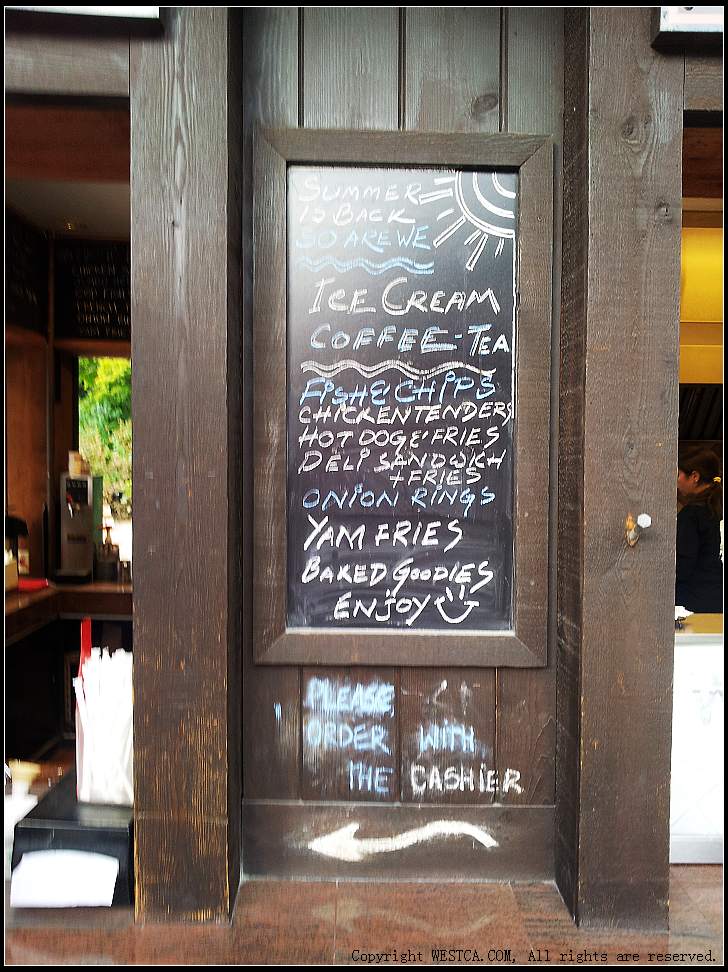 SUMMER
IS BACK
SO ARE WE
ICE CREAM
COFFEE-TEA
FISH & CHIPS
CHICKEN TENDERS
HOT DOG & FRIES
DELI SANDWICH
+ FRIES
ONION RINGS
YAM FRIES
BAKED GOODIES
ENJOY
PLEASE
ORDER WITH
THE CASHIER
Copyright WESTCA.COM, All rights are reserved.